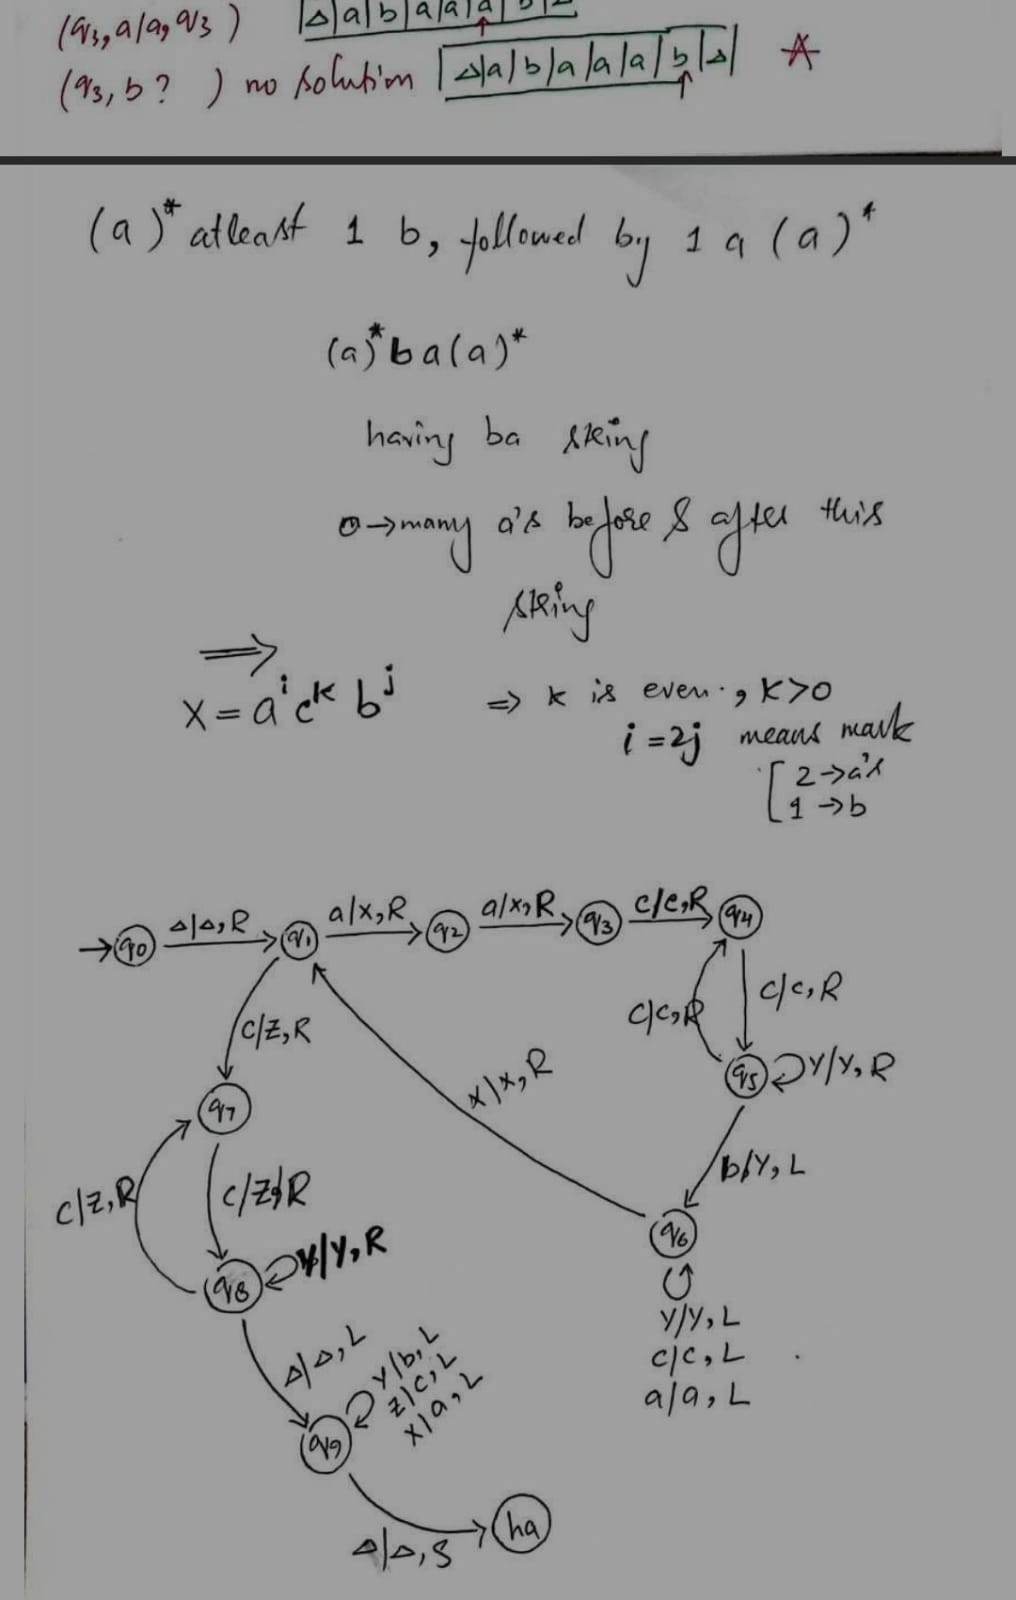 (q3, a/a, q3) |Δ|a|b|a|a|a|b|Δ
(q3, b? ) no solution |Δ|a|b|a|a|a|b|Δ|
(a)* atleast 1 b, followed by 1 a (a)*
(a)* b a (a)*
having ba string
0→many a's before & after this
string
⇒
X = a^i c^k b^j ⇒ k is even., k>0
i = 2j means mark
[ 2→a's
1→b
→ q0 Δ/Δ,R q1 a/x,R q2 a/x,R q3 c/c,R q4
c/z,R
c/c,R
c/c,R
q5 Y/Y,R
x/x,R
q7
b/Y,L
c/z,R
c/z,R
q6
q8 Y/Y,R
Y/Y,L
c/c,L
a/a,L
Δ/Δ,L
Y/b,L
z/c,L
x/a,L
q9
ha
Δ/Δ,S